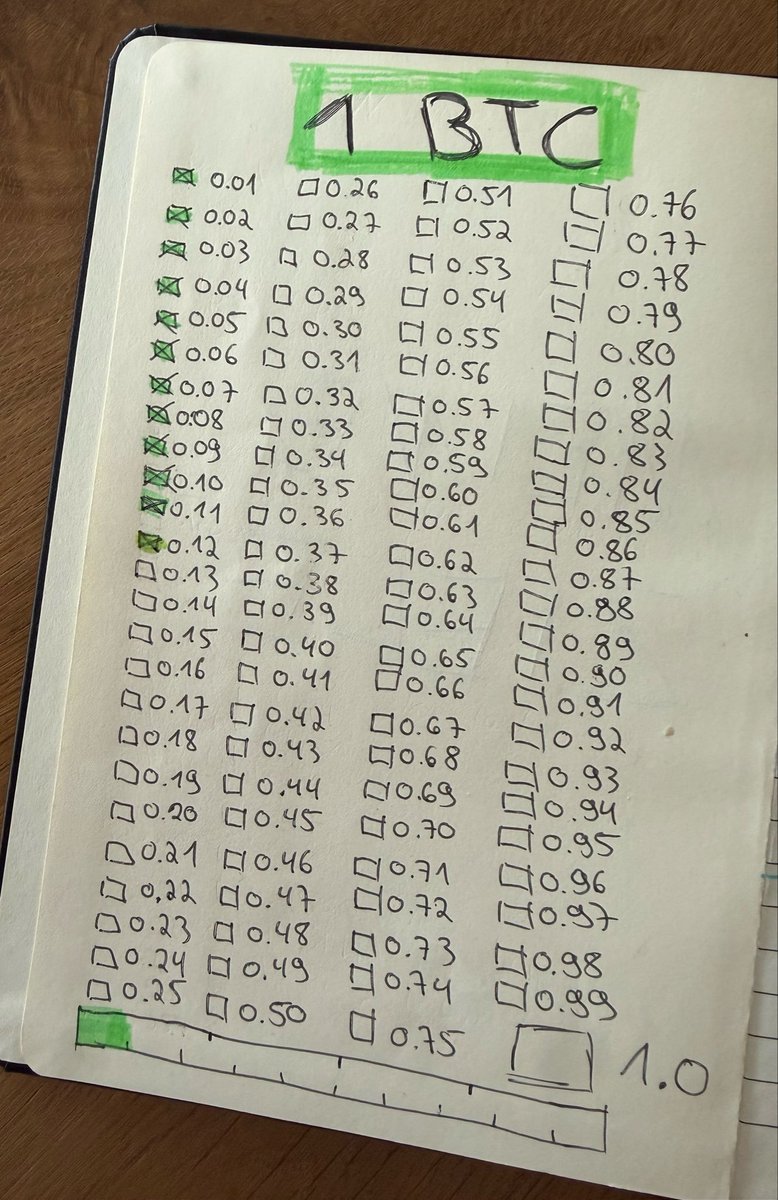 1 BTC
0.01 0.26 0.51 0.76
0.02 0.27 0.52 0.77
0.03 0.28 0.53 0.78
0.04 0.29 0.54 0.79
0.05 0.30 0.55 0.80
0.06 0.31 0.56 0.81
0.07 0.32 0.57 0.82
0.08 0.33 0.58 0.83
0.09 0.34 0.59 0.84
0.10 0.35 0.60 0.85
0.11 0.36 0.61 0.86
0.12 0.37 0.62 0.87
0.13 0.38 0.63 0.88
0.14 0.39 0.64 0.89
0.15 0.40 0.65 0.90
0.16 0.41 0.66 0.91
0.17 0.42 0.67 0.92
0.18 0.43 0.68 0.93
0.19 0.44 0.69 0.94
0.20 0.45 0.70 0.95
0.21 0.46 0.71 0.96
0.22 0.47 0.72 0.97
0.23 0.48 0.73 0.98
0.24 0.49 0.74 0.99
0.25 0.50 0.75 1.0